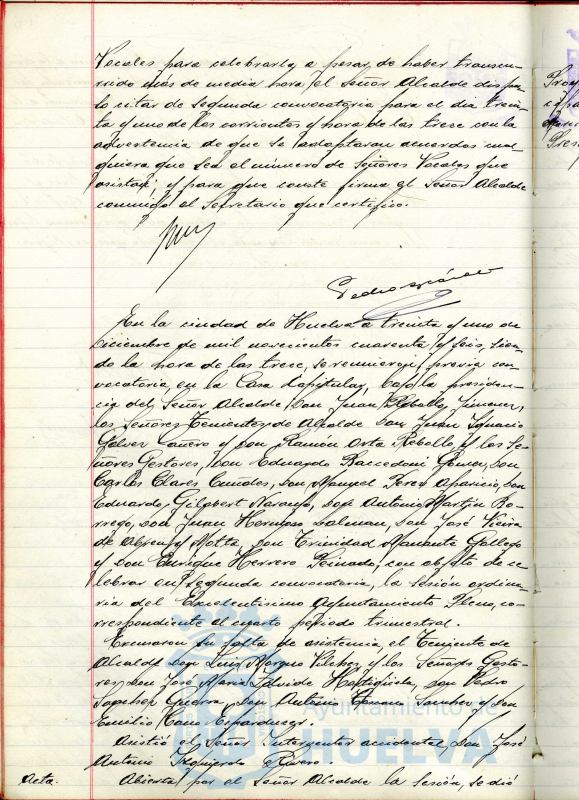 Vocales para celebrarla, a pesar de haber transcu-
rrido más de media hora, el Señor Alcalde dispu-
so citar de segunda convocatoria para el día trein-
ta y uno de los corrientes y hora de las trece con la
advertencia de que se adoptaran acuerdos cual-
quiera que sea el número de señores Vocales que
asistan; y para que conste firma el Señor Alcalde
conmigo el Secretario que certifico.
Pedro
En la ciudad de Huelva a treinta y uno de
Diciembre de mil novecientos cuarenta y seis, sien-
do la hora de las trece, se reunieron previa con-
vocatoria en la Casa Capitular, bajo la presiden-
cia del Señor Alcalde Don Juan Rebollo Jimenez,
los Señores Tenientes de Alcalde Don Juan Ignacio
Galvez Cañero y Don Ramón Orta Rebollo y los Se-
ñores Gestores, Don Eduardo Baccedoni Gomez, Don
Carlos Clares Don Manuel Perez Aparicio, Don
Eduardo Gilabert Naranjo, Don Antonio Martin Bo-
rrego, Don Juan Hermoso Don José Vieira
de Abreu y Motta, Don Trinidad Gallego
y Don Enrique Herrero Peinado, con objeto de ce-
lebrar en segunda convocatoria, la sesión ordina-
ria del Excelentisimo Ayuntamiento Pleno, co-
rrespondiente al cuarto periodo trimestral.
Excusaron su falta de asistencia, el Teniente de
Alcalde Don Luis Vilchez y los Señores Gesto-
res Don José Maria Don Pedro
Guerra, Don Antonio Sanchez y Don
Emilio Cano
Asistió el Señor Interventor accidental, Don José
Antonio Izquierdo Rivero.
Acta. Abierta por el Señor Alcalde la sesión, se dió
Ayuntamiento de
HUELVA